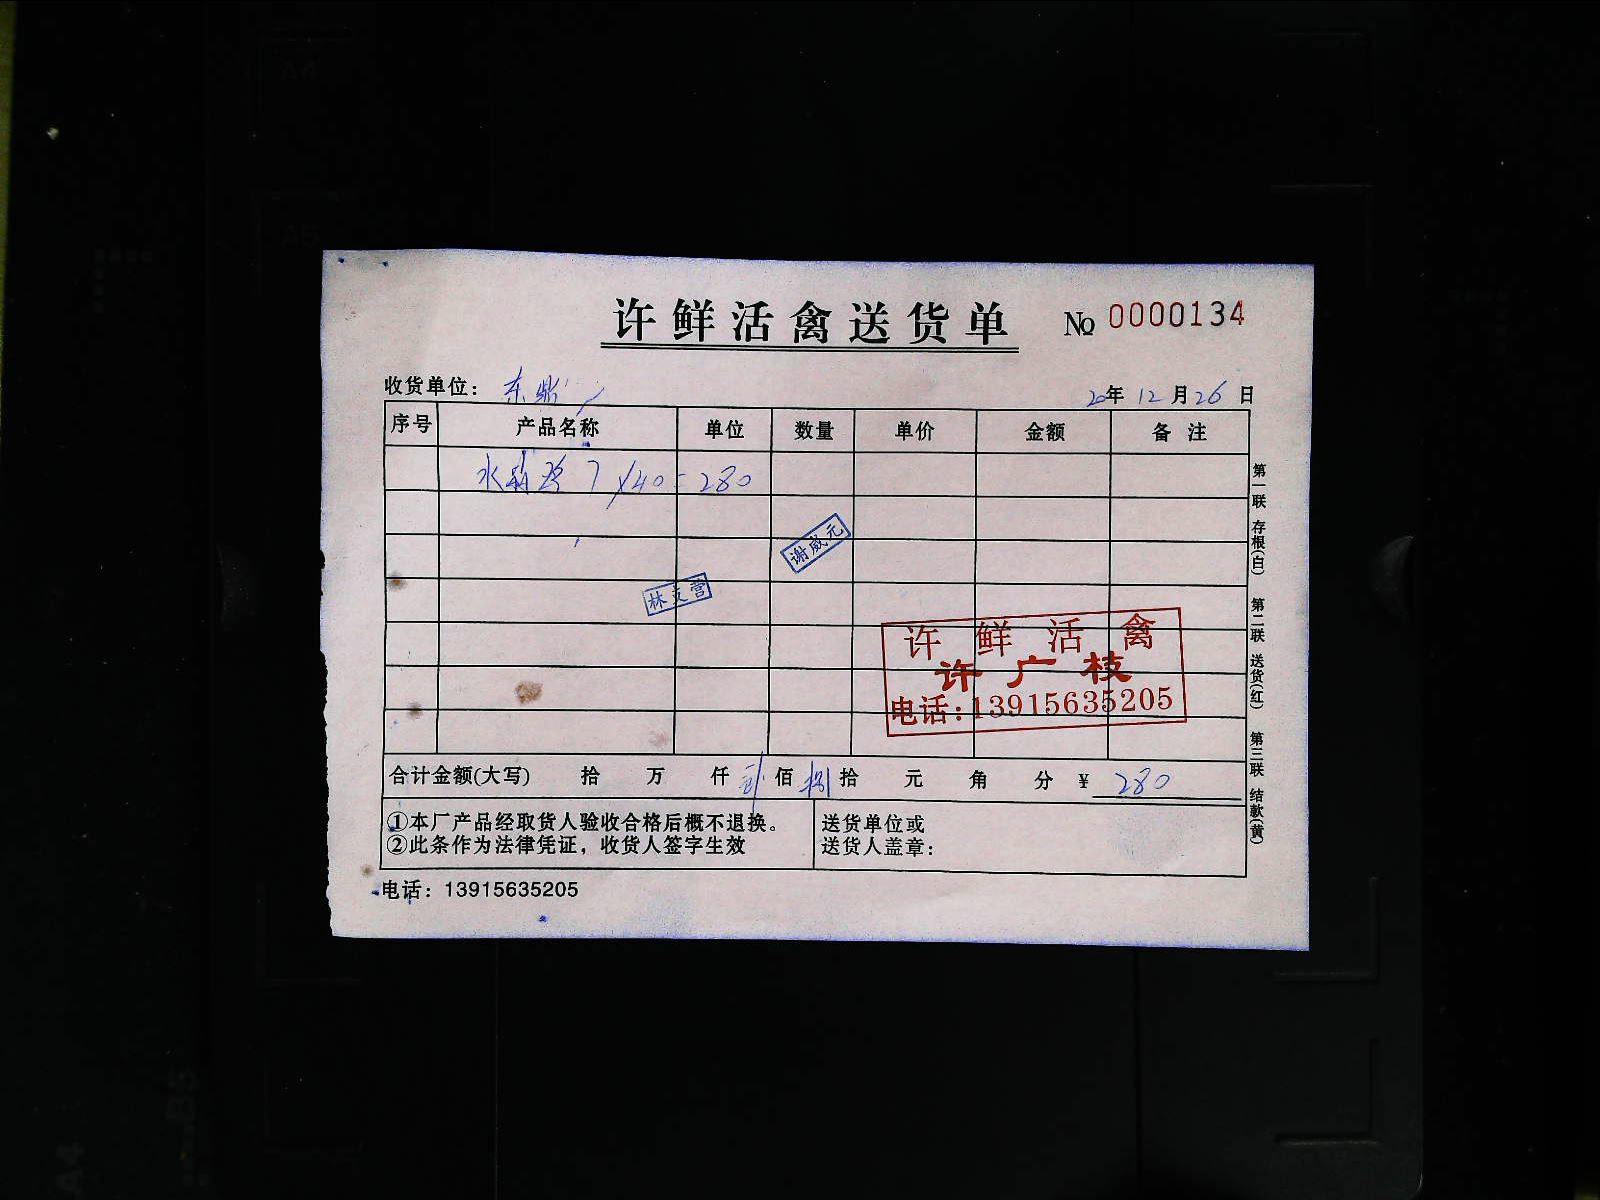 许鲜活禽送货单 № 0000134
收货单位： 东鼎 20年12月26日
序号 产品名称 单位 数量 单价 金额 备注
水 7×40=280
谢威元
林文营
许鲜活禽
许广枝
电话:13915635205
合计金额(大写) 拾 万 仟 贰 佰 捌 拾 元 角 分 ¥ 280
①本厂产品经取货人验收合格后概不退换。
②此条作为法律凭证，收货人签字生效
送货单位或
送货人盖章：
电话：13915635205
第一联 存根(白) 第二联 送货(红) 第三联 结款(黄)